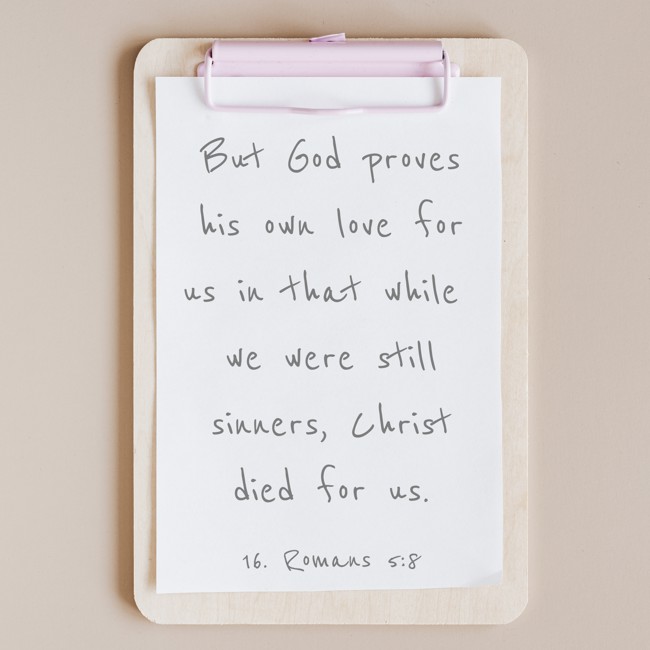 But God proves
his own love for
us in that while
we were still
sinners, Christ
died for us.
16. Romans 5:8